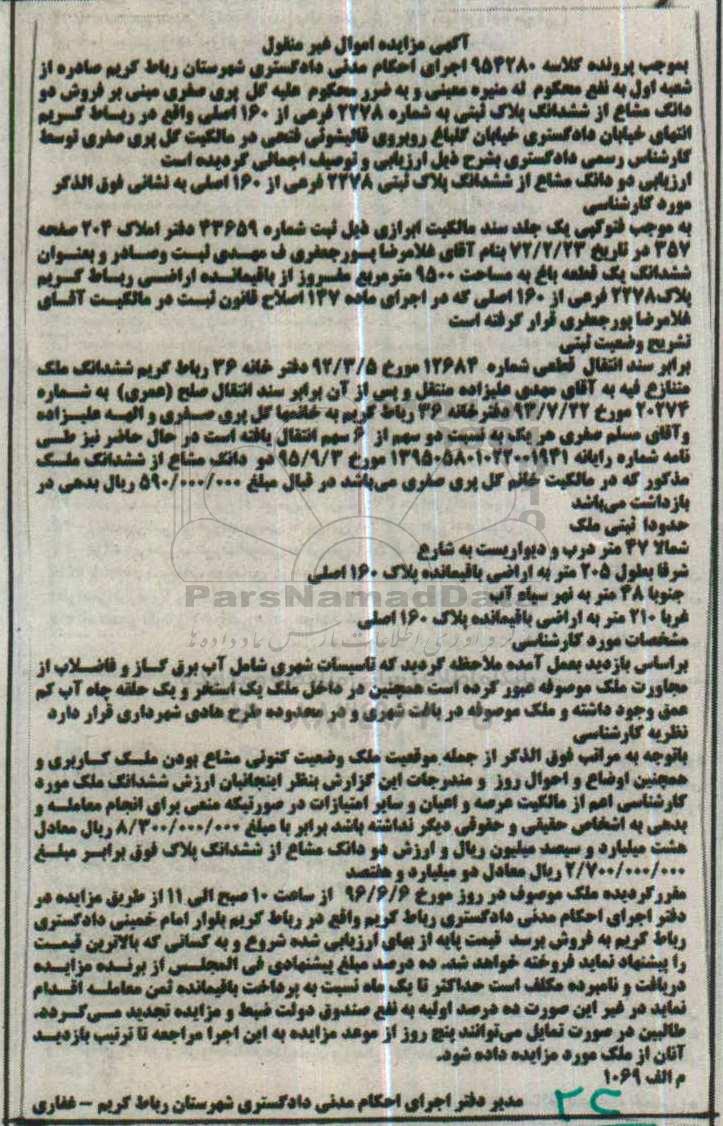 آگهی مزایده اموال غیر منقول
بموجب پرونده کلاسه ۹۵۴۲۸۰ اجرای احکام مدنی دادگستری شهرستان رباط کریم صادره از
شعبه اول به نفع محکوم له منیره معینی و به ضرر محکوم علیه گل پری صفری مبنی بر فروش دو
دانگ مشاع از ششدانگ پلاک ثبتی به شماره ۲۲۷۸ فرعی از ۱۶۰ اصلی واقع در رباط کریم
انتهای خیابان دادگستری خیابان گلباغ روبروی قالیشوئی فتحی در مالکیت گل پری صفری توسط
کارشناس رسمی دادگستری بشرح ذیل ارزیابی و توصیف اجمالی گردیده است
ارزیابی دو دانگ مشاع از ششدانگ پلاک ثبتی ۲۲۷۸ فرعی از ۱۶۰ اصلی به نشانی فوق الذکر
مورد کارشناسی
به موجب فتوکپی یک جلد سند مالکیت ابرازی ذیل ثبت شماره ۴۳۶۵۹ دفتر املاک ۲۰۴ صفحه
۳۵۷ در تاریخ ۷۲/۲/۲۳ بنام آقای غلامرضا پورجعفری ف مهدی ثبت وصادر و بعنوان
ششدانگ یک قطعه باغ به مساحت ۹۵۰۰ مترمربع مفروز از باقیمانده اراضی رباط کریم
پلاک۲۲۷۸ فرعی از ۱۶۰ اصلی که در اجرای ماده ۱۴۷ اصلاح قانون ثبت در مالکیت آقای
غلامرضا پورجعفری قرار گرفته است
تشریح وضعیت ثبتی
برابر سند انتقال قطعی شماره ۱۲۶۸۴ مورخ ۹۲/۳/۵ دفتر خانه ۳۶ رباط کریم ششدانگ ملک
متنازع فیه به آقای مهدی علیزاده منتقل و پس از آن برابر سند انتقال صلح (عمری) به شماره
۲۰۲۷۴ مورخ ۹۳/۷/۲۲ دفترخانه ۳۶ رباط کریم به خانمها گل پری صفری و الهه علیزاده
وآقای مسلم صفری هر یک به نسبت دو سهم از ۶ سهم انتقال یافته است در حال حاضر نیز طی
نامه شماره رایانه ۱۳۹۵۰۵۸۰۱۰۲۲۰۰۱۹۴۱ مورخ ۹۵/۹/۳ دو دانگ مشاع از ششدانگ ملک
مذکور که در مالکیت خانم گل پری صفری می‌باشد در قبال مبلغ ۵۹۰/۰۰۰/۰۰۰ ریال بدهی در
بازداشت می‌باشد
حدودا ثبتی ملک
شمالا ۴۷ متر درب و دیواریست به شارع
شرقا بطول ۲۰۵ متر به اراضی باقیمانده پلاک ۱۶۰ اصلی
جنوبا ۴۸ متر به نهر سیاه آب
غربا ۲۱۰ متر به اراضی باقیمانده پلاک ۱۶۰ اصلی
ParsNamadData
مشخصات مورد کارشناسی
براساس بازدید بعمل آمده ملاحظه گردید که تاسیسات شهری شامل آب برق گاز و فاضلاب از
مجاورت ملک موصوفه عبور کرده است همچنین در داخل ملک یک استخر و یک حلقه چاه آب کم
عمق وجود داشته و ملک موصوفه در بافت شهری و در محدوده طرح هادی شهرداری قرار دارد
نظریه کارشناسی
باتوجه به مراتب فوق الذکر از جمله موقعیت ملک وضعیت کنونی مشاع بودن ملک کاربری و
همچنین اوضاع و احوال روز و مندرجات این گزارش بنظر اینجانبان ارزش ششدانگ ملک مورد
کارشناسی اعم از مالکیت عرصه و اعیان و سایر امتیازات در صورتیکه منعی برای انجام معامله و
بدهی به اشخاص حقیقی و حقوقی دیگر نداشته باشد برابر با مبلغ ۸/۳۰۰/۰۰۰/۰۰۰ ریال معادل
هشت میلیارد و سیصد میلیون ریال و ارزش دو دانگ مشاع از ششدانگ پلاک فوق برابر مبلغ
۲/۷۰۰/۰۰۰/۰۰۰ ریال معادل دو میلیارد و هفتصد
مقررگردیده ملک موصوف در روز مورخ ۹۶/۶/۶ از ساعت ۱۰ صبح الی ۱۱ از طریق مزایده در
دفتر اجرای احکام مدنی دادگستری رباط کریم واقع در رباط کریم بلوار امام خمینی دادگستری
رباط کریم به فروش برسد قیمت پایه از بهای ارزیابی شده شروع و به کسانی که بالاترین قیمت
را پیشنهاد نماید فروخته خواهد شد. ده درصد مبلغ پیشنهادی فی المجلس از برنده مزایده
دریافت و نامبرده مکلف است حداکثر تا یک ماه نسبت به پرداخت باقیمانده ثمن معامله اقدام
نماید در غیر این صورت ده درصد اولیه به نفع صندوق دولت ضبط و مزایده تجدید می‌گردد.
طالبین در صورت تمایل می‌توانند پنج روز از موعد مزایده به این اجرا مراجعه تا ترتیب بازدید
آنان از ملک مورد مزایده داده شود.
م الف ۱۰۶۹
مدیر دفتر اجرای احکام مدنی دادگستری شهرستان رباط کریم – غفاری